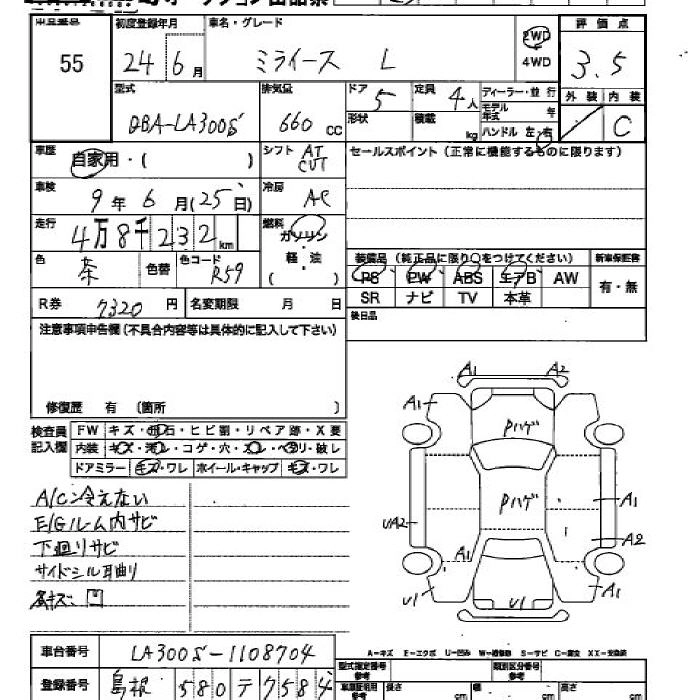 出品番号 55
初度登録年月 24年6月
車名・グレード ミライース L
2WD
4WD
評価点 3.5
外装 内装 C
型式 DBA-LA300S
排気量 660 cc
ドア 5
形状
定員 4人
積載 kg
ディーラー・並行
モデル年式 年
ハンドル 左・右
車歴 自家用・( )
シフト AT CVT
セールスポイント(正常に機能するものに限ります)
車検 9年6月(25日)
冷房 AC
走行 4万8千232km
燃料 ガソリン
軽・油
( )
色 茶
色替
色コード R59
装備品(純正品に限り○をつけてください)
新車保証書
PS PW ABS エアB AW
有・無
SR ナビ TV 本革
R券 7320円
名変期限 月 日
後日品
注意事項申告欄(不具合内容等は具体的に記入して下さい)
修復歴 有 〔箇所 〕
検査員記入欄
FW キズ・飛石・ヒビ割・リペア跡・X要
内装 キズ・汚レ・コゲ・穴・スレ・ヘタリ・破レ
ドアミラー キズ・ワレ ホイール・キャップ キズ・ワレ
A/C冷えない
E/Gルーム内サビ
下廻りサビ
サイドシル耳曲り
A1 A2
A1
Pハゲ
Pハゲ
A1
UA2
A2
A1
U1 U1 A1
A-キズ E-エクボ U-凹み W-補修跡 S-サビ C-腐食 XX-交換済
車台番号 LA300S-1108704
登録番号 島根 580 テ 7584
型式指定番号 参考
類別区分番号 参考
車庫証明用 参考 長さ cm 幅 cm 高さ cm